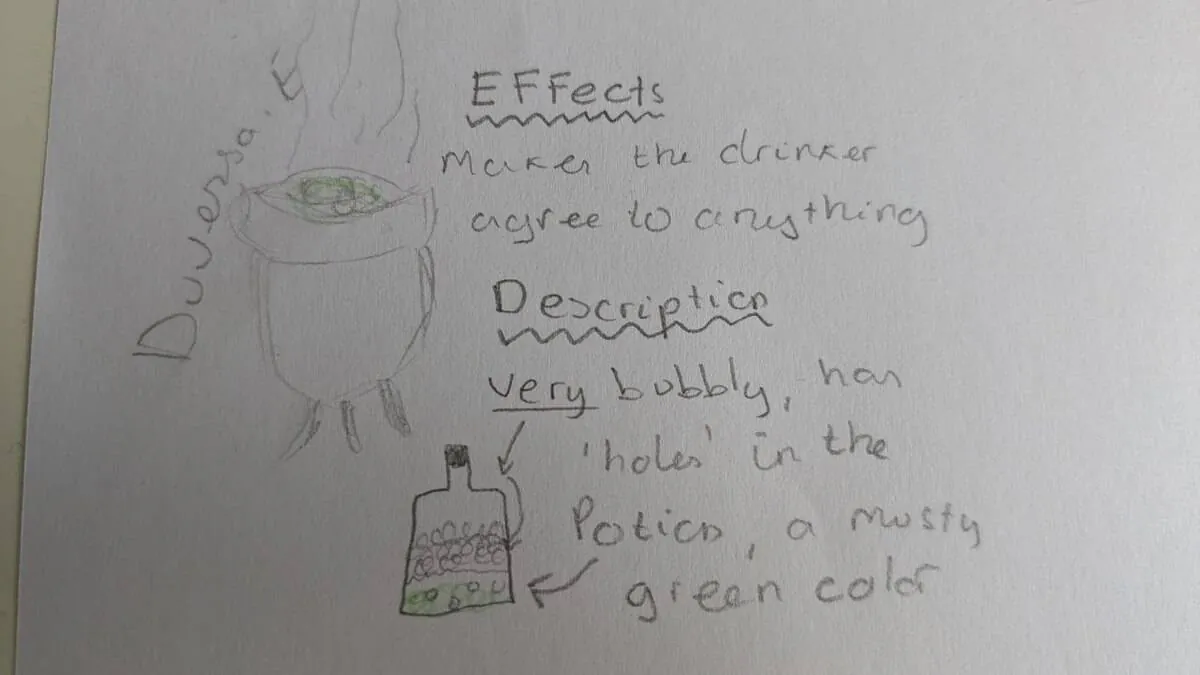 Duversa.E
Effects
Makes the drinker
agree to anything
Description
very bubbly, has
'holes' in the
Potion, a musty
green color